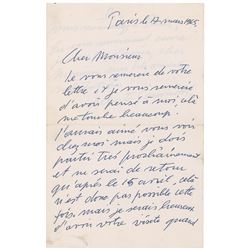 Paris le 17 mars 1965
Cher Monsieur
Je vous remercie de votre
lettre et je vous remercie
d'avoir pensé à moi, cela
me touche beaucoup.
J'aurais aimé vous voir
chez moi mais je dois
partir très prochainement
et ne serai de retour
qu'après le 15 avril, cela
n'est donc pas possible cette
fois mais je serais heureux
d'avoir votre visite quand